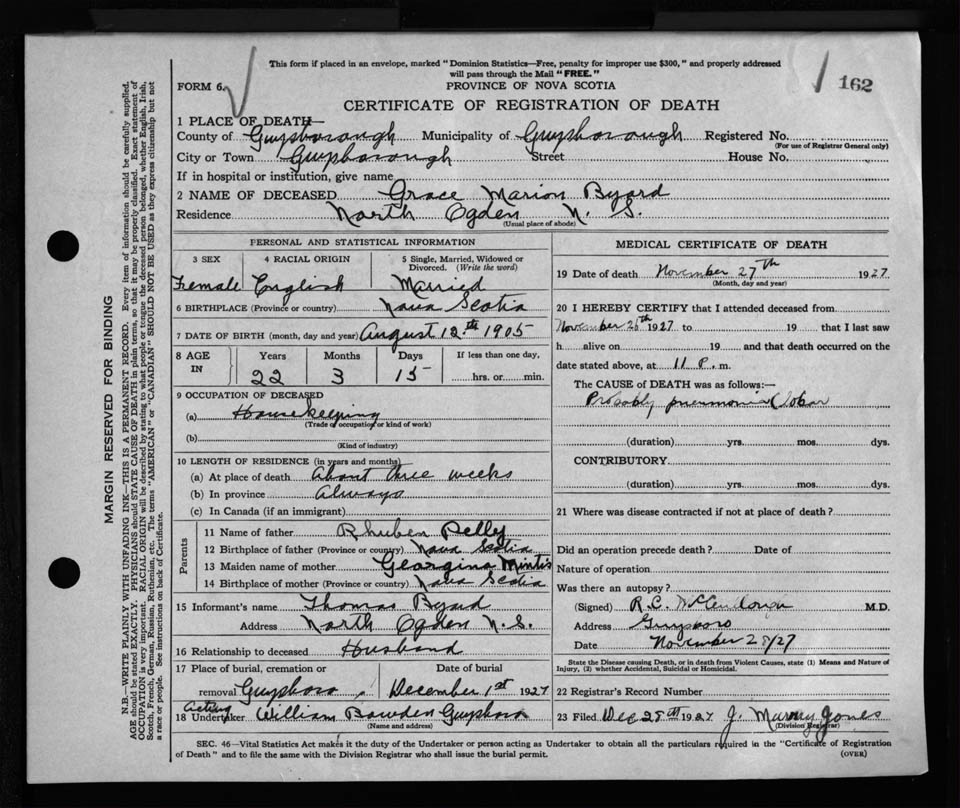 This form if placed in an envelope, marked "Dominion Statistics—Free, penalty for improper use $300," and properly addressed
will pass through the Mail "FREE."
FORM 6. PROVINCE OF NOVA SCOTIA 162
CERTIFICATE OF REGISTRATION OF DEATH
1 PLACE OF DEATH—
County of Guysborough Municipality of Guysborough Registered No.
(For use of Registrar General only)
City or Town Guysborough Street House No.
If in hospital or institution, give name
2 NAME OF DECEASED Grace Marion Byard
Residence North Ogden N. S.
(Usual place of abode)
PERSONAL AND STATISTICAL INFORMATION
3 SEX 4 RACIAL ORIGIN 5 Single, Married, Widowed or Divorced. (Write the word)
Female English Married
6 BIRTHPLACE (Province or country) Nova Scotia
7 DATE OF BIRTH (month, day and year) August 12th 1905
8 AGE IN Years Months Days If less than one day,
22 3 15 hrs. or min.
9 OCCUPATION OF DECEASED
(a) House Keeping
(Trade of occupation or kind of work)
(b)
(Kind of industry)
10 LENGTH OF RESIDENCE (in years and months)
(a) At place of death About three weeks
(b) In province Always
(c) In Canada (if an immigrant)
Parents
11 Name of father Rhuben Pelly
12 Birthplace of father (Province or country) Nova Scotia
13 Maiden name of mother Georgina Mintis
14 Birthplace of mother (Province or country) Nova Scotia
15 Informant's name Thomas Byard
Address North Ogden N.S.
16 Relationship to deceased Husband
17 Place of burial, cremation or Date of burial
removal Guysboro December 1st 1927
Acting
18 Undertaker William Bowden Guysboro
(Name and address)
MEDICAL CERTIFICATE OF DEATH
19 Date of death November 27th 1927
(Month, day and year)
20 I HEREBY CERTIFY that I attended deceased from
November 26th 1927 to 19 that I last saw
h alive on 19 and that death occurred on the
date stated above, at 11 P. m.
The CAUSE OF DEATH was as follows:—
Probably pneumonia (lobar
(duration) yrs. mos. dys.
CONTRIBUTORY
(duration) yrs. mos. dys.
21 Where was disease contracted if not at place of death?
Did an operation precede death? Date of
Nature of operation
Was there an autopsy?
(Signed) R.C. McCullough M.D.
Address Guysboro
Date November 28/27
State the Disease causing Death, or in death from Violent Causes, state (1) Means and Nature of
Injury, (2) whether Accidental, Suicidal or Homicidal.
22 Registrar's Record Number
23 Filed Dec 25th 1927 J. Murray Jones
(Division Registrar)
SEC. 46—Vital Statistics Act makes it the duty of the Undertaker or person acting as Undertaker to obtain all the particulars required in the "Certificate of Registration
of Death" and to file the same with the Division Registrar who shall issue the burial permit. (OVER)
MARGIN RESERVED FOR BINDING
N.B.—WRITE PLAINLY WITH UNFADING INK—THIS IS A PERMANENT RECORD. Every item of information should be carefully supplied.
AGE should be stated EXACTLY. PHYSICIANS should STATE CAUSE OF DEATH in plain terms, so that it may be properly classified. Exact statement of
OCCUPATION is very important. RACIAL ORIGIN will be described by stating to what people or race the deceased person belonged, whether English, Irish,
Scotch, French, German, Russian, Ruthenian, etc. The terms "AMERICAN" or "CANADIAN" SHOULD NOT BE USED as they express citizenship but not
a race or people. See instructions on back of Certificate.